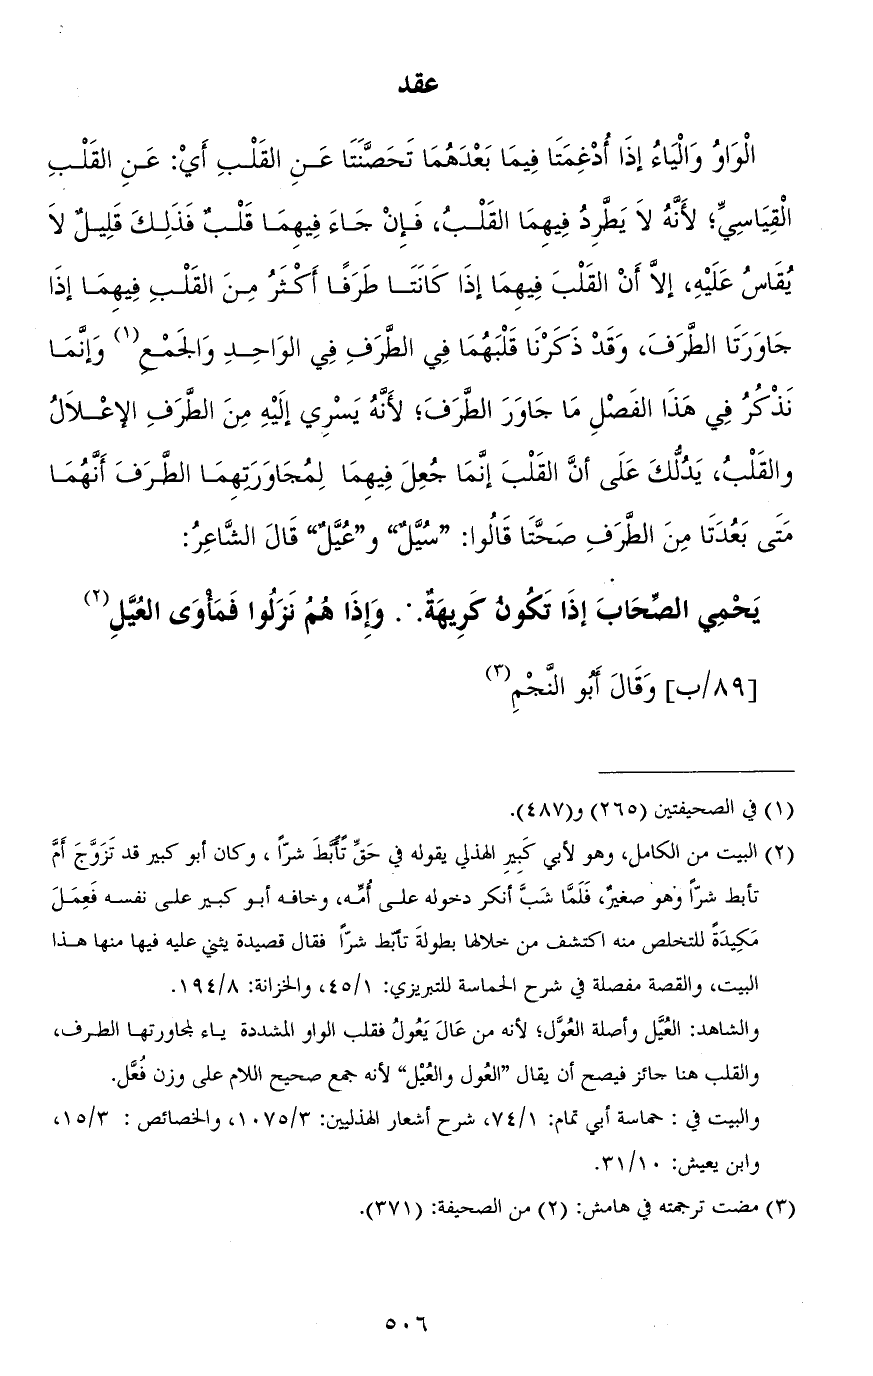 عقد
الْوَاوُ وَالْيَاءُ إِذَا أُدْغِمَتَا فِيمَا بَعْدَهُمَا تَحَصَّنَتَا عَـنِ القَلْـبِ أَيْ: عَـنِ القَلْـبِ
الْقِيَاسِيِّ؛ لأَنَّهُ لاَ يَطَّرِدُ فِيهِمَا القَلْـبُ، فَـإِنْ جَـاءَ فِيهِمَـا قَلْـبٌ فَذَلِـكَ قَلِيـلٌ لاَ
يُقَاسُ عَلَيْهِ، إِلاَّ أَنْ القَلْبَ فِيهِمَا إِذَا كَانَتَـا طَرَفًا أَكْثَـرُ مِـنَ القَلْـبِ فِيهِمَـا إِذَا
جَاوَرَتَا الطَّرَفَ، وَقَدْ ذَكَرْنَا قَلْبَهُمَا فِي الطَّرَفِ فِي الوَاحِـدِ وَالجَمْـعِ(١) وَإِنَّمَـا
نَذْكُرُ فِي هَذَا الفَصْلِ مَا جَاوَرَ الطَّرَفَ؛ لأَنَّهُ يَسْرِي إِلَيْهِ مِنَ الطَّرَفِ الإِعْـلاَلُ
والقَلْبُ، يَدُلُّكَ عَلَى أنَّ القَلْبَ إِنَّمَا جُعِلَ فِيهِمَا لِمُجَاوَرَتِهِمَا الطَّـرَفَ أَنَّهُمَـا
مَتَى بَعُدَتَا مِنَ الطَّرَفِ صَحَّتَا قَالُوا: ”سُيَّلٌ“ و”عُيَّلٌ“ قَالَ الشَّاعِرُ:
يَحْمِي الصِّحَابَ إِذَا تَكُونُ كَرِيهَةٌ ∴ وَإِذَا هُمُ نَزَلُوا فَمَأْوَى العُيَّلِ(٢)
[٨٩/ب] وَقَالَ أَبُو النَّجْمِ(٣)
(١) في الصحيفتين (٢٦٥) و(٤٨٧).
(٢) البيت من الكامل، وهو لأبي كَبِيرٍ الهذلي يقوله في حَقِّ تَأَبَّطَ شرّاً ، وكان أبو كبير قد تَزَوَّجَ أمَّ
تأبط شرّاً وهو صغيرٌ، فَلَمَّا شَبَّ أنكر دخوله علـى أُمّـه، وخافـه أبـو كبـير علـى نفسـه فَعِمَـلَ
مَكِيدَةً للتخلص منه اكتشف من خلالها بطولةَ تأبّط شرّاً فقال قصيدة يثني عليه فيها منها هـذا
البيت، والقصة مفصلة في شرح الحماسة للتبريزي: ٤٥/١، والخزانة: ١٩٤/٨.
والشاهد: العُيَّل وأصلة العُوَّل؛ لأنه من عَالَ يَعُولُ فقلب الواو المشددة يـاء لمجاورتهـا الطـرف،
والقلب هنا جائز فيصح أن يقال ”العُول والعُيْل“ لأنه جمع صحيح اللام على وزن فُعَّل.
والبيت في : حماسة أبي تمام: ٧٤/١، شرح أشعار الهذليين: ١٠٧٥/٣، والخصائص : ١٥/٣،
وابن يعيش: ٣١/١٠.
(٣) مضت ترجمته في هامش: (٢) من الصحيفة: (٣٧١).
٥٠٦